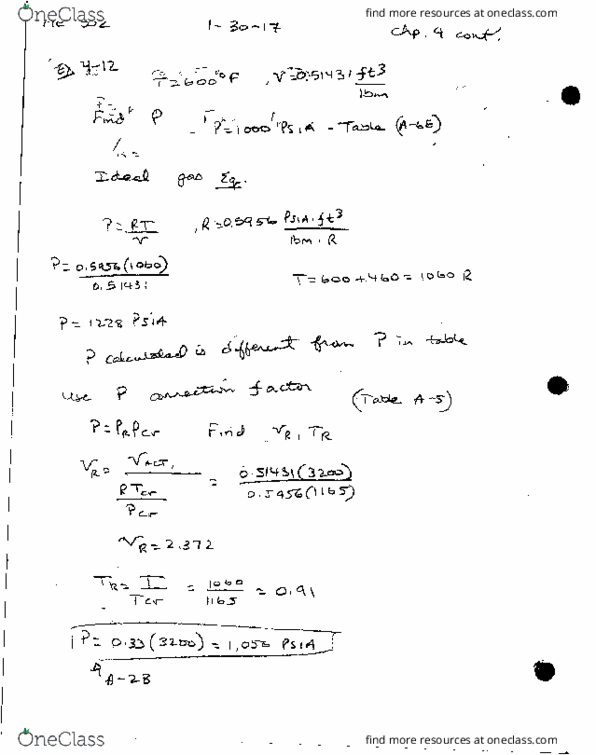 OneClass
find more resources at oneclass.com
302 1-30-17 Chp. 4 cont.
Ex 4-12 T=600°F , V=0.51431 ft³/lbm
Find P - P=1000 Psia - Table (A-6E)
Ideal gas Eq.
P=RT/V , R=0.5956 Psia·ft³/lbm·R
P=0.5956(1060)/0.51431 T=600+460=1060 R
P=1228 Psia
P calculated is different from P in table
Use P correction factor (Table A-5)
P=PRPcr Find VR, TR
VR= VACT./(RTcr/Pcr) = 0.51431(3200)/0.5956(1165)
VR=2.372
TR= T/Tcr = 1060/1165 = 0.91
P= 0.33(3200)=1,056 PSIA
A-28
OneClass
find more resources at oneclass.com